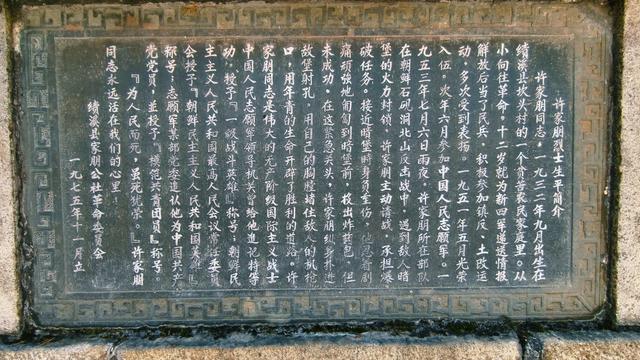 许家朋烈士生平简介
许家朋同志，一九三二年九月出生在
绩溪县坎头村的一个贫苦农民家庭里。从
小向往革命。十二岁就为新四军递送情报
解放后当了民兵，积极参加镇反、土改运
动，多次受到表扬。一九五一年五月光荣
入伍。次年六月参加中国人民志愿军。一
九五三年七月六日雨夜，许家朋所在部队
在朝鲜石砚洞北山反击战中，遇到敌人暗
堡的火力封锁，许家朋主动请战，承担爆
破任务。接近暗堡时身负重伤，他忍着剧
痛顽强地匍匐到暗堡前，拉出炸药包，但
未成功。在这紧急关头，许家朋纵身扑进
故堡射孔，用自己的胸膛堵住敌人的机枪
口，用年青的生命开辟了胜利的道路。许
家朋同志是伟大的无产阶级国际主义战士
中国人民志愿军领导机关曾给他追记特等
功，授予『一级战斗英雄』称号；朝鲜民
主主义人民共和国最高人民会议常任委员
会授予『朝鲜民主主义人民共和国英雄』
称号。志愿军某部党委追认他为中国共产
党党员，並授予『模范共青团员』称号。
『为人民而死，虽死犹荣。』许家朋
同志永远活在我们的心里
绩溪县家朋公社革命委员会
一九七五年十一月立